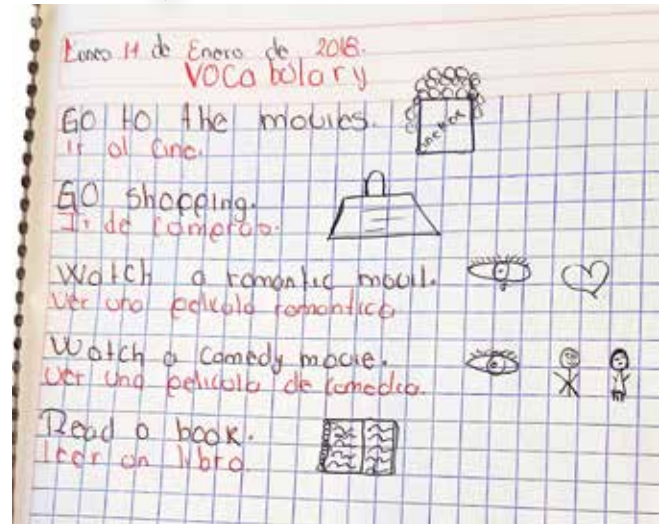 Lunes 11 de Enero de 2016.
Vocabolary
GO to the movies.
Ir al cine.
GO shopping.
Ir de compras.
Watch a romantic movil.
Ver una pelicula romantica
Watch a comedy movie.
Ver una pelicula de comedia.
Read a book.
leer un libro